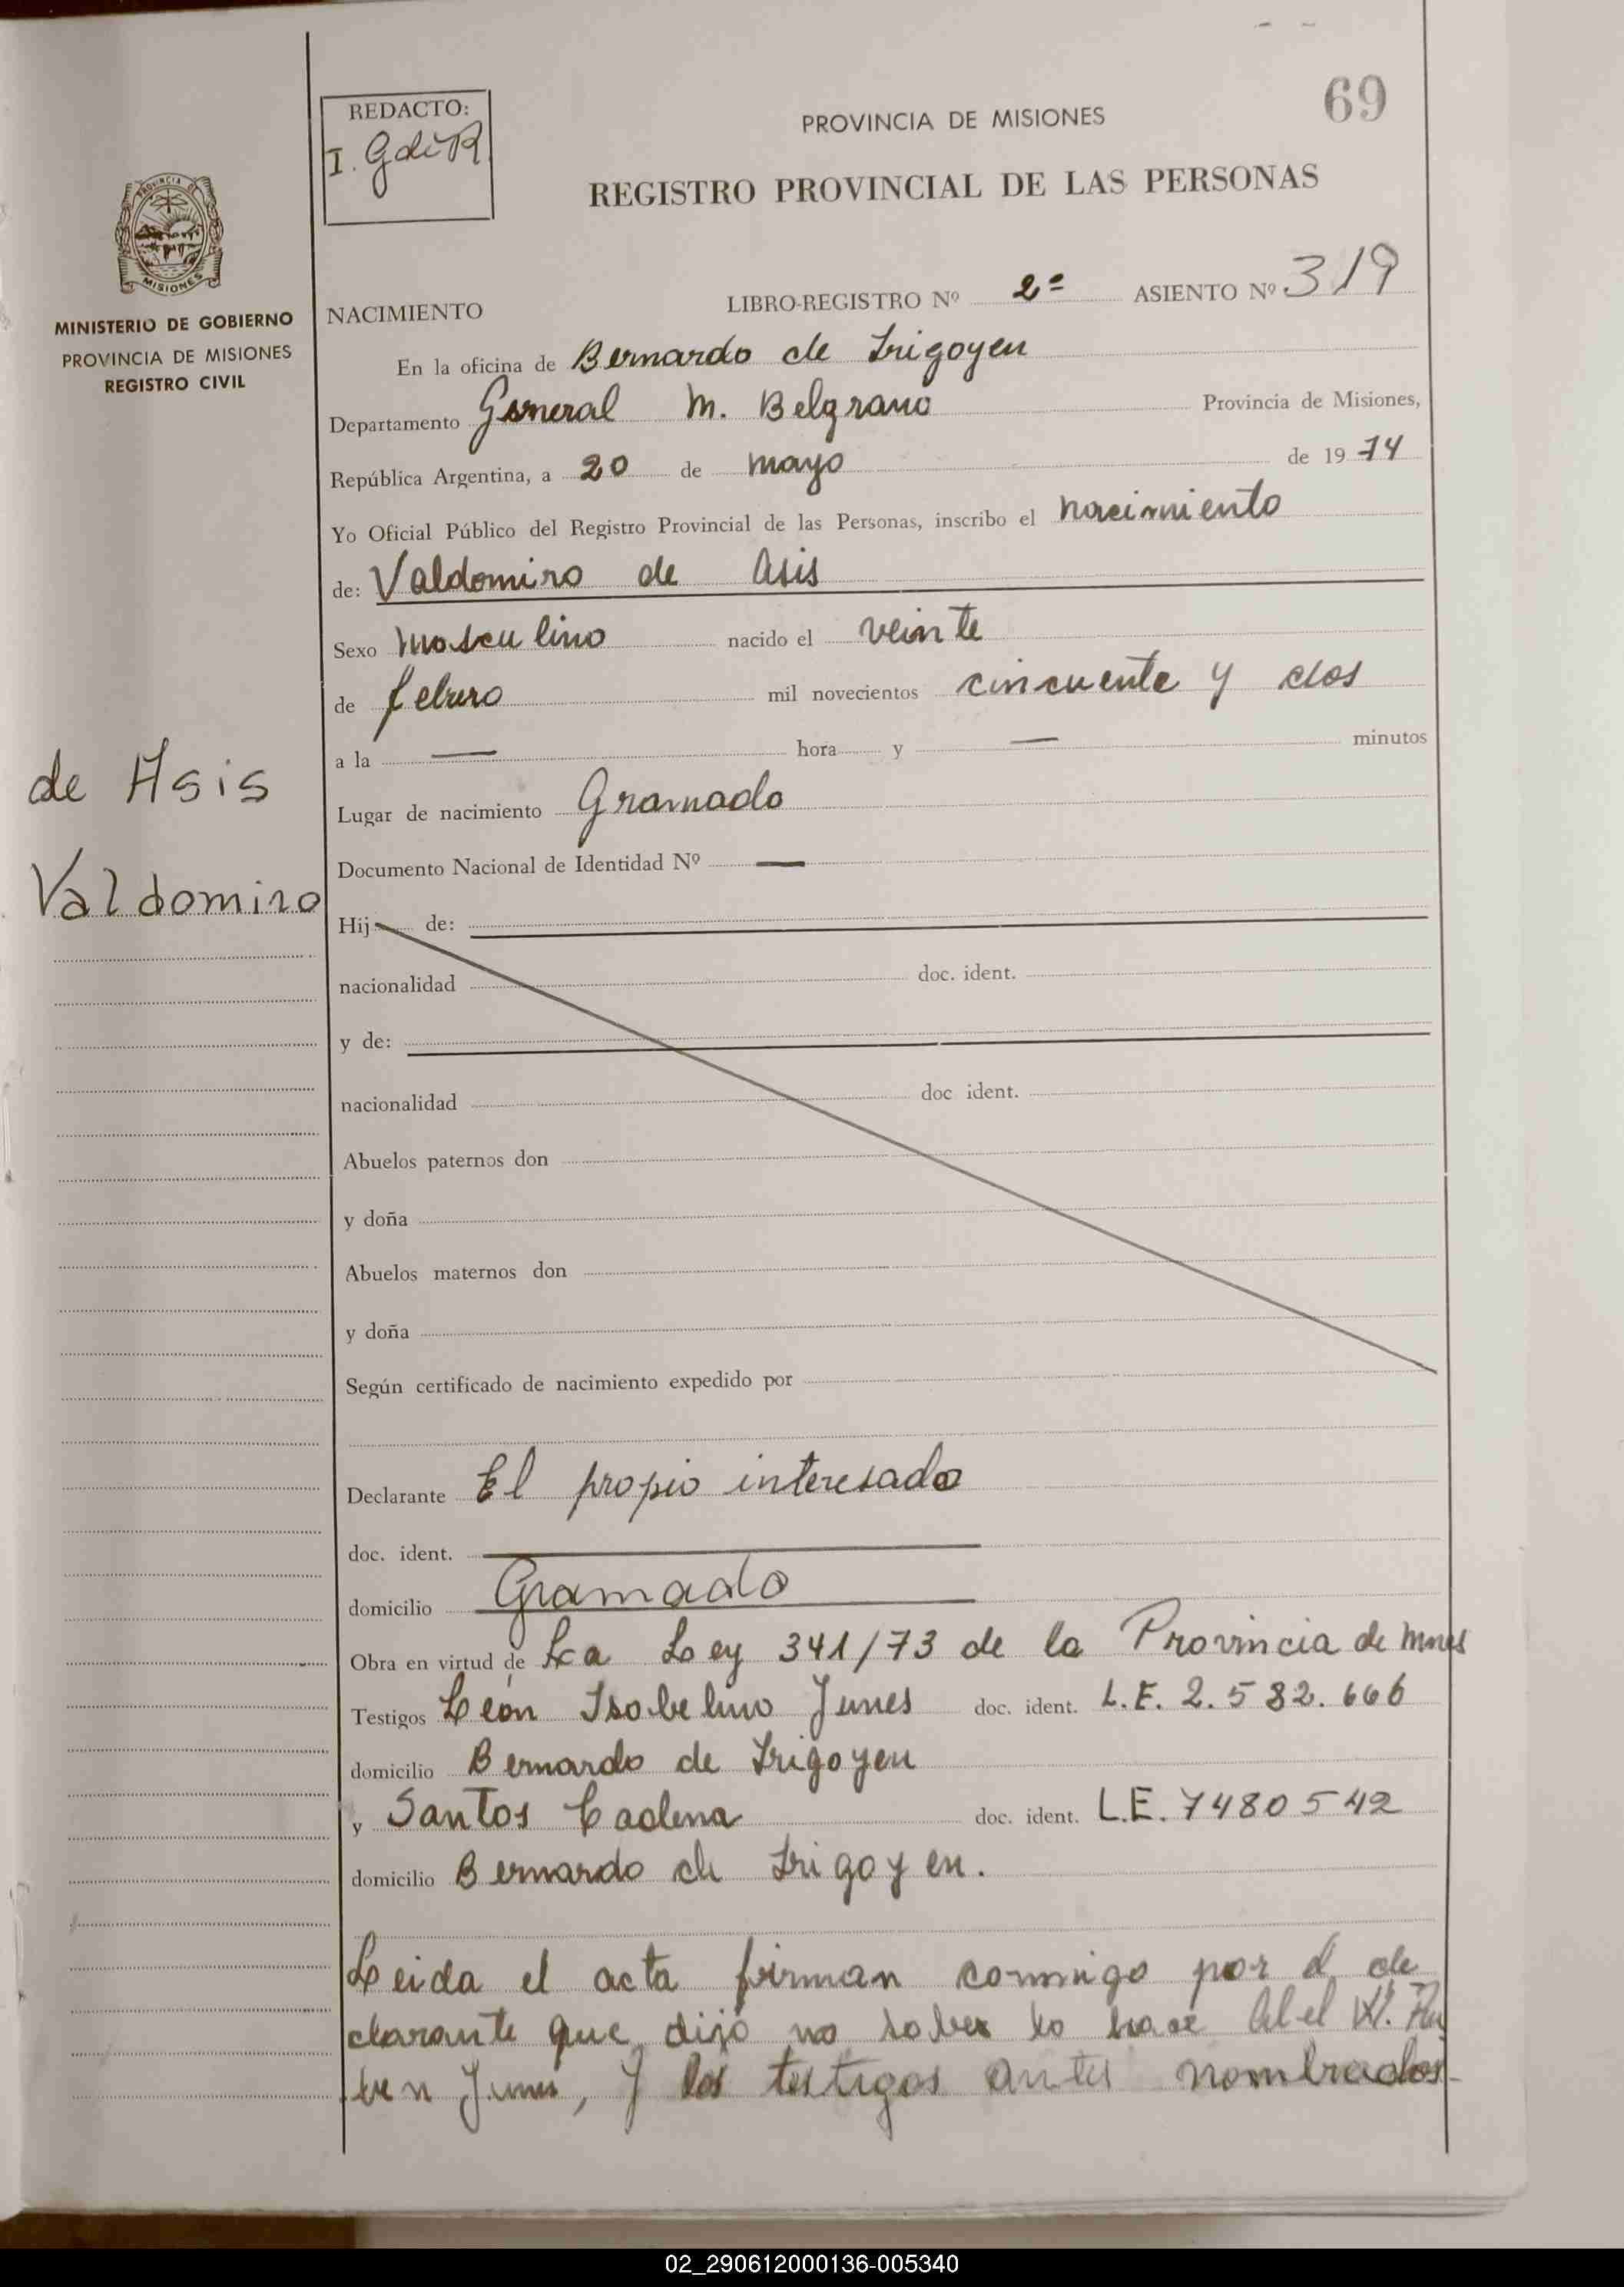 69
REDACTO:
PROVINCIA DE MISIONES
REGISTRO PROVINCIAL DE LAS PERSONAS
MISIONES
MINISTERIO DE GOBIERNO
PROVINCIA DE MISIONES
REGISTRO CIVIL
NACIMIENTO LIBRO-REGISTRO Nº 2º ASIENTO Nº 319
En la oficina de Bernardo de Irigoyen
Departamento General M. Belgrano Provincia de Misiones,
República Argentina, a 20 de mayo de 19 74
Yo Oficial Público del Registro Provincial de las Personas, inscribo el nacimiento
de: Valdomiro de Asis
Sexo Masculino nacido el veinte
de febrero mil novecientos cincuenta y dos
a la — hora y — minutos
de Asis
Valdomiro
Lugar de nacimiento Gramado
Documento Nacional de Identidad Nº —
Hij de:
nacionalidad doc. ident.
y de:
nacionalidad doc ident.
Abuelos paternos don
y doña
Abuelos maternos don
y doña
Según certificado de nacimiento expedido por
Declarante El propio interesado
doc. ident.
domicilio Gramado
Obra en virtud de La Ley 341/73 de la Provincia de Mnes
Testigos León Isabelino Junes doc. ident. L.E. 2.582.666
domicilio Bernardo de Irigoyen
y Santos Cadena doc. ident. L.E. 7480542
domicilio Bernardo de Irigoyen.
Leida el acta firman conmigo por el de
clarante que dijo no saber lo hace Abel
Junes, y los testigos antes nombrados-
02_290612000136-005340